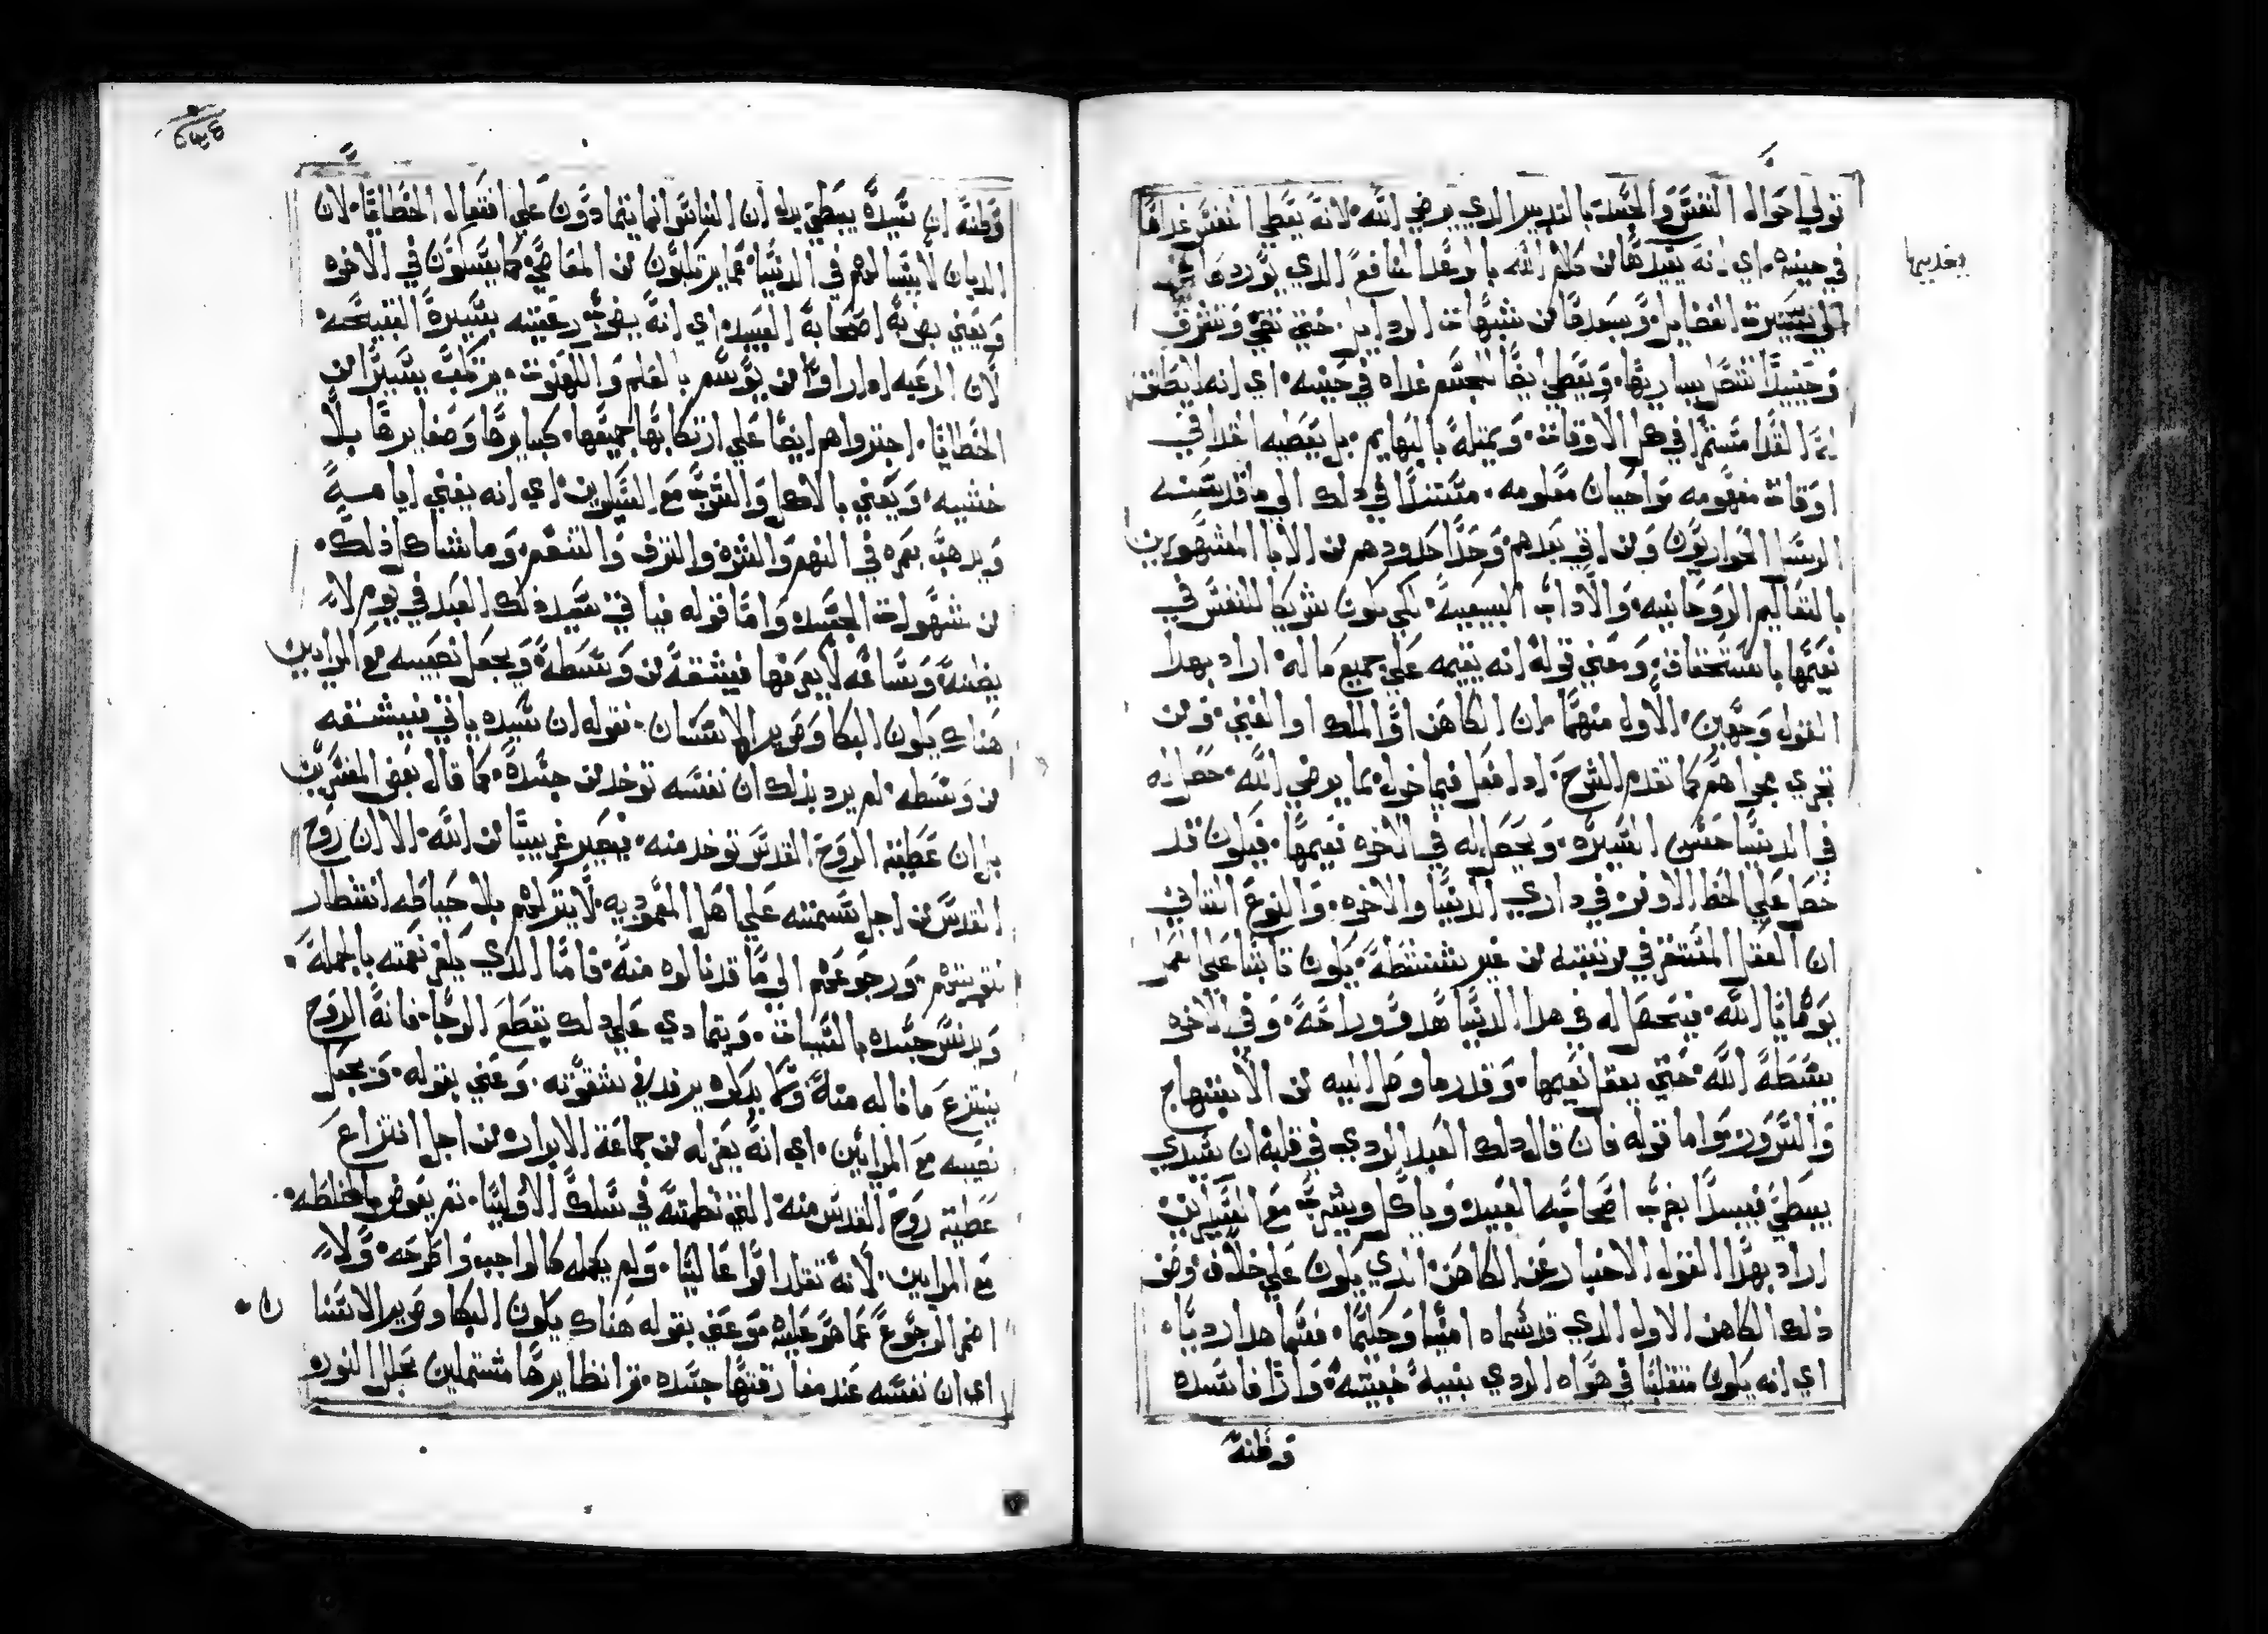 تولي احوال النفس والجسد بالتدبير الدي يرضي الله. لانه يعطي النفس غداها
في حينه. اي انه يغديها من كلام الله بالوعد النافع الدي يوردها
يغديها
الي سيرة الفضايل. ويبعدها من شبهات الردايل. حتي تنقي وتشرف
وحينيدا تتصل بباريها. ويعطي ايضا الجسم غداه في حينه. اي انه لا يطلق
له الغدا مستمرا في كل الاوقات. ويمتله بالبهايم. بل يعطيه الغدا في
اوقات مفهومه واحيان معلومه. مستندا في دلك الي ما قد سنه
الرسل الحواريون ومن اتي بعدهم وحدا حدودهم من الابا المشهورين
بالتعاليم الروحانيه. والاداب البيعيية. لكي يكون شريكا للنفس في
نعيمها باستحقاق. ومعني قوله انه يقيمه علي جميع ماله. اراد بهدا
القول وجهين. الاول منهما ان الكاهن او الملك او الغني. ومن
يجري مجراهم كما تقدم الشرح. ادا فعل فيما خول. بما يرضي الله. حصل له
في الدنيا حسن السيره. ويحصل له في الاخره نعيمها. فيكون قد
حصل علي الحظ الاوفر. في داري الدنيا والاخره. والنوع التاني
ان العقل المستقر في مرتبته من غير شطط. يكون تابتا علي العمل
بوصايا الله. فيحصل له في هدا الدنيا هدو وراحة. وفي الاخره
يبسطه الله حتي يعقل نعيمها. وقدر ما وصل اليه من الابتهاج
والسرور. واما قوله فان قال دلك العبد الردي في قلبه ان سيدي
يبطي فيبدا يضرب اصحابه العبيد وياكل ويشرب مع السكيرين
اراد بهدا القول الاخبار عن الكاهن الدي يكون علي خلاف وضن
دلك الكاهن الاول الدي قد سماه امينا وحكيما. فسما هدا رديا.
اي انه يكون متقلبا في هواه الردي بنية خبيته. وادا فاسده
وظنه
وظنه ان سيده يبطي يريد ان الناس انما يتمادون علي افتعال الخطايا. لان
الديان لا يسالهم في الدنيا. عما يرتكبون من المعاصي. كما يسلون في الاخره
ويعني بضربه اصحابه العبيد. اي انه يضرب رعيته بسيرة القبيحه.
لان الرعيه ادا راوا من يوسم بالعلم والكهنوت. يرتكب يسيرا من
الخطايا. اجتروا هم ايضا علي ارتكابها جميعها. كبايرها وصغايرها بلا
خشيه. ويعني بالاكل والشرب مع السكيرين. اي انه يفني ايامه
ويدهب عمره في النهم والشره والترف والتنعم. وما شاكل ذلك.
من شهوات الجسد. واما قوله فياتي سيد ذلك العبد في يوم لا
يظنه وساعه لا يعرفها فيشقه من وسطه ويجعل نصيبه مع المرايين
هناك يكون البكا وصرير الاسنان. فقوله ان سيده ياتي فيشقه
من وسطه. لم يرد بذلك ان نفسه توخد من جسده. كما قال بعض المفسرين
بل ان عطية الروح القدس توخد منه. فيصير غريبا من الله. الا ان روح
القدس من اجل تسمته علي اهل المعموديه. لا يتركهم بلا حياطه انتظار
توبتهم. ورجوعهم الي ما قد نالوه منه. فاما الدي يكفر نعمته بالجملة.
ويدنس جسده بالسيات. ويتمادي علي دلك بقطع الرجا. فانه الروح
ينتزع ما ناله منه وكما يدلوه يرفد في شقوته. وعني بقوله. ويجعل
نصيبه مع المرايين. اي انه يعزله من جماعة الابرار. من اجل انتزاع
عطية روح القدس منه. التي نظمته في سلك الاوليا. تم يعوض بالخلطه.
مع المرايين. لانه تقلد امرا عاليا. ولم يكمله كالواجب واطرحه. ولا
اضمر الرجوع عما هو عليه. وعني بقوله هناك يكون البكا وصرير الاسنان.
اي ان نفسه عند مفارقتها جسده. ترا نظايرها مشتملين بحلل النور